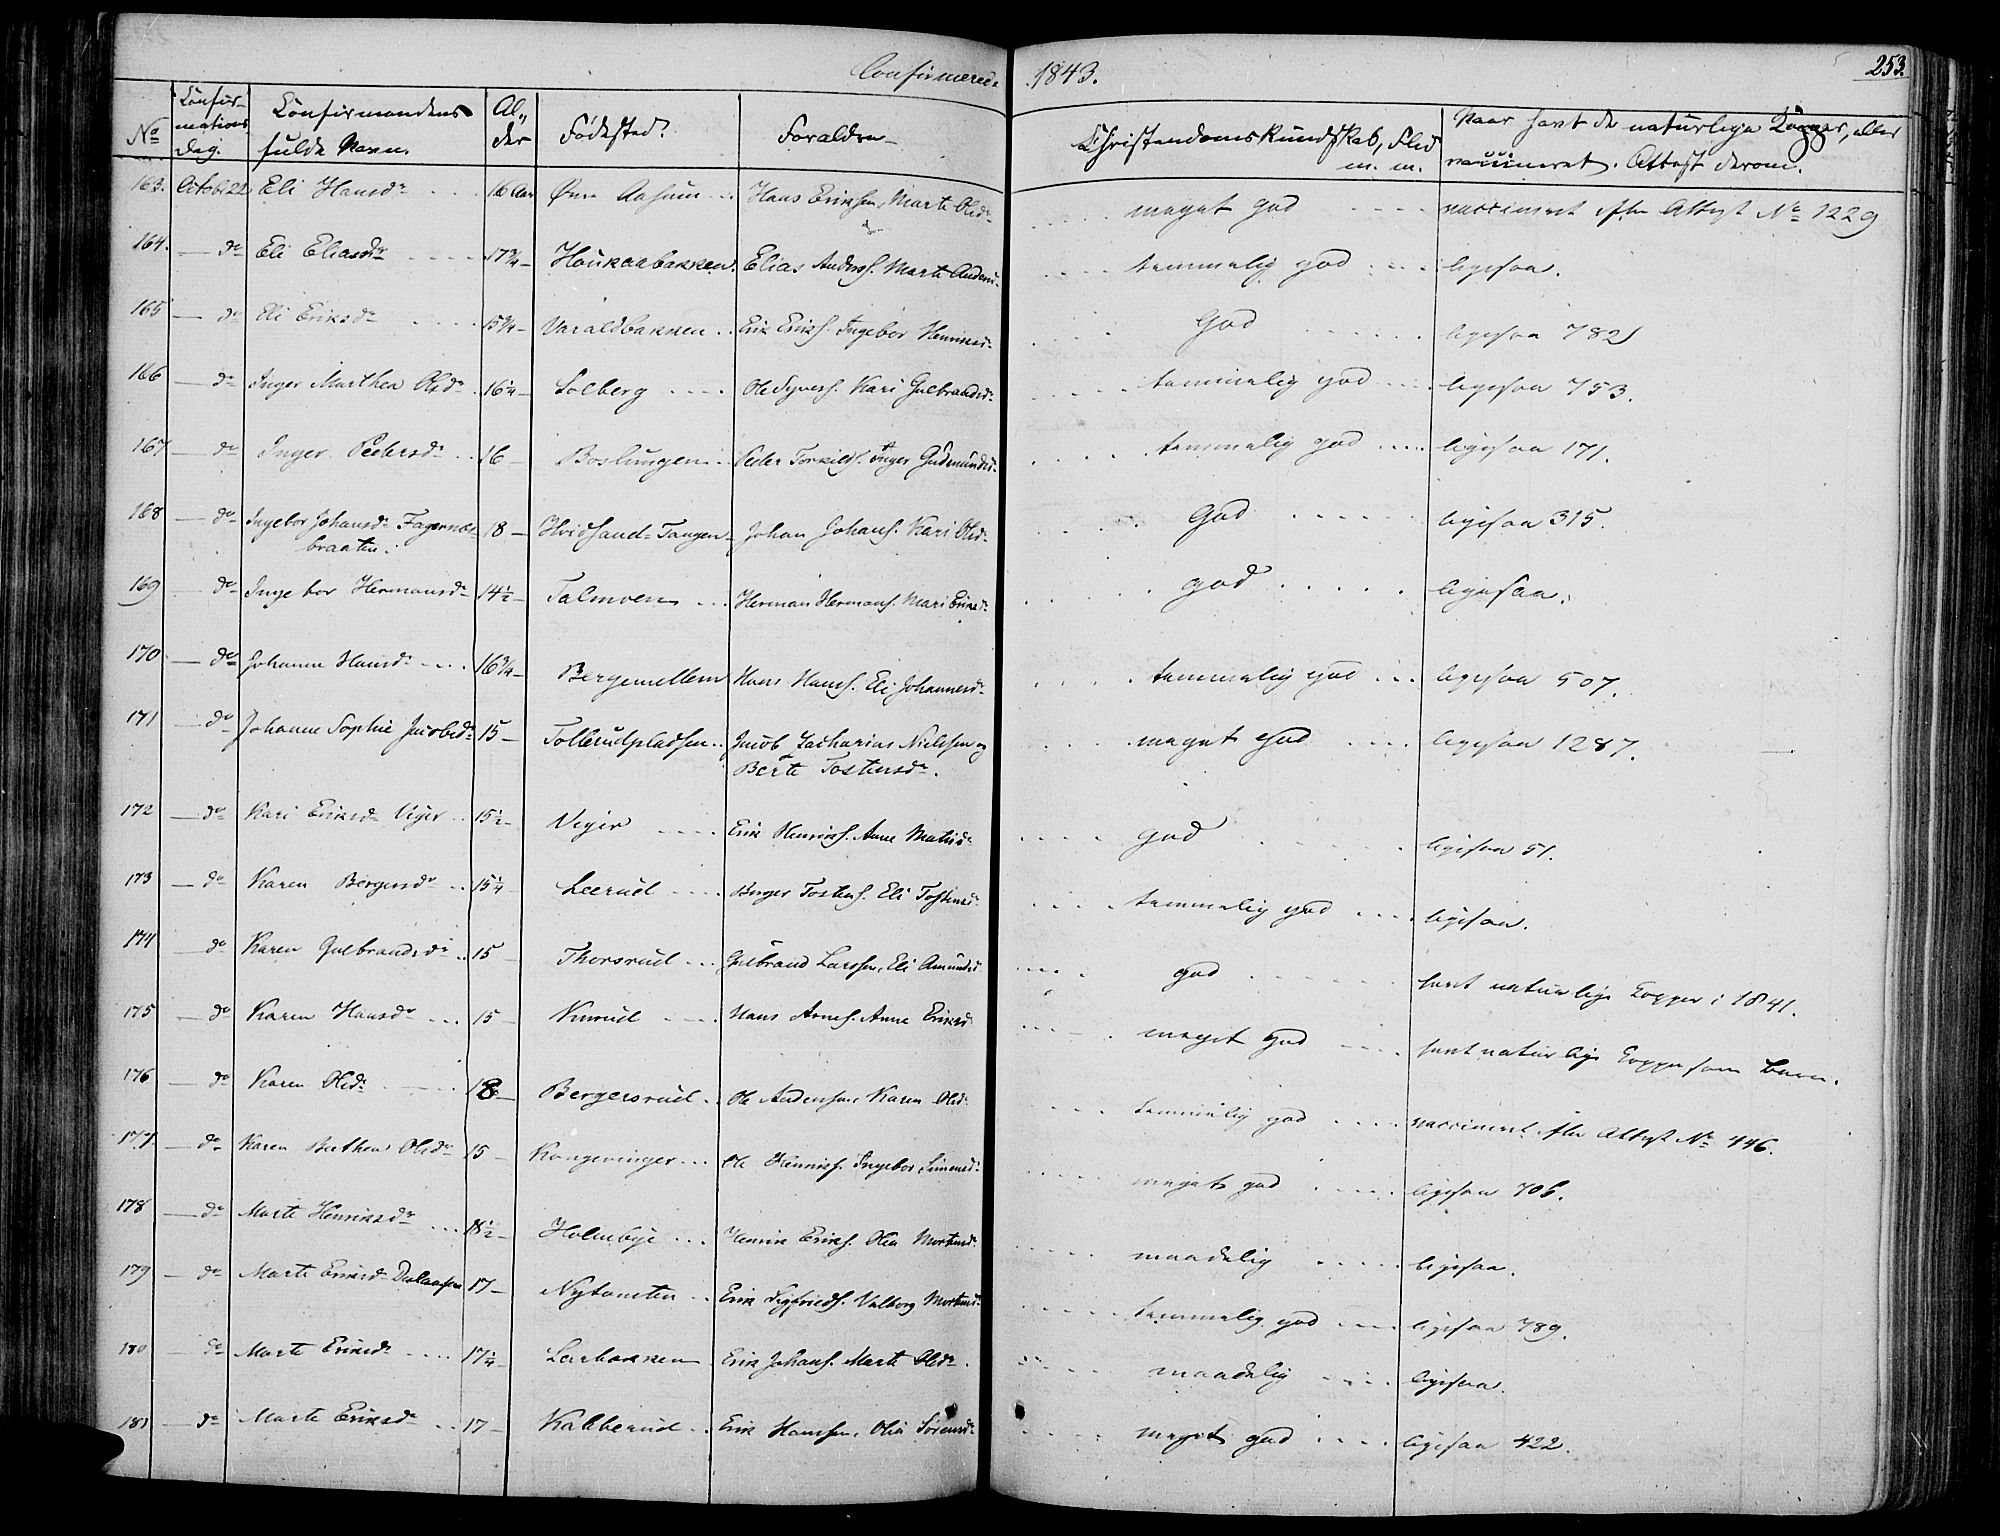 Confirmerede 1843. 253.
No Confirmations Dag. Confirmandens fulde Navn. Alder Fødested. Forældre Christendomskundskab, Flid m. m. Naar havt de naturlige Kopper, eller vaccineret. Attest derom.
163. Octob 22 Eli Hansdr 16 Aar Øvre Aasum Hans Eriksen, Marte Olsdr meget god vaccineret efter Attest No 1229
164. — do Eli Eliasdr 17 3/4 — Haukaabakken. Elias Anders. Marte Andersdr temmelig god ligesaa.
165 — do Eli Eriksdr 15 3/4 — Varaldbakken Erik Eriks. Ingebor Henriksdr God ligesaa 782
166 — do Inger Marthea Olsdr 16 1/4 — Solberg Ole Syvers. Kari Gulbrandsdr temmelig god ligesaa 753.
167 — do Inger Pedersdr 16 — Boslungen Peder Torkilds. Inger Gudmundsdr temmelig god ligesaa 171.
168 — do Ingebor Johansdr Fagernæs 18 — Hvidsand-Tangen Johan Johans. Kari Olsdr God ligesaa 315.
braaten.
169 — do Ingebor Hermansdr 14 1/2 — Talmoen Herman Hermans. Mari Eriksdr god ligesaa.
170 — do Johanne Hansdr 16 3/4 — Bergemellem Hans Hans. Eli Johannesdr temmelig god ligesaa 507.
171 — do Johanne Sophie Jacobsdr 15 — Tollerudpladsen Jacob Zacharias Nielsen og meget god ligesaa 1287.
Berte Tostensdr.
172 — do Kari Eriksdr Viger 15 1/2 — Viger Erik Henriks. Anne Mathisdr god ligesaa 51.
173 — do Karen Bergersdr 15 1/4 — Leerud Berger Tostens. Eli Tostensdr temmelig god ligesaa.
174 — do Karen Gulbrandsdr 15 — Thorsrud Gulbrand Larssen, Eli Amundsdr god havt naturlige Kopper i 1841.
175 — do Karen Hansdr 15 — Kurud Hans Arnes. Anne Eriksdr meget god havt naturlige Kopper som Barn.
176 — do Karen Olsdr 18 — Bergersrud Ole Andersen, Karen Olsdr temmelig god vaccineret efter Attest No 446.
177. — do Karen Berthea Olsdr 15 — Kongsvinger Ole Henriks. Ingebor Simensdr meget god ligesaa 706.
178 — do Marte Henriksdr 18 1/2 — Holmbye Henrik Eriks. Olia Mortensdr maadelig ligesaa.
179 — do Marte Eriksdr 17 — Nytomten Erik Sigfrieds. Valborg Mortensdr temmelig god ligesaa 789.
180 — do Marte Eriksdr 17 1/4 — Lierbakken Erik Johans. Marte Olsdr. maadelig ligesaa.
181 — do Marte Eriksdr 17 — Kabberud Erik Hansen, Olia Sørensdr meget god ligesaa 422.